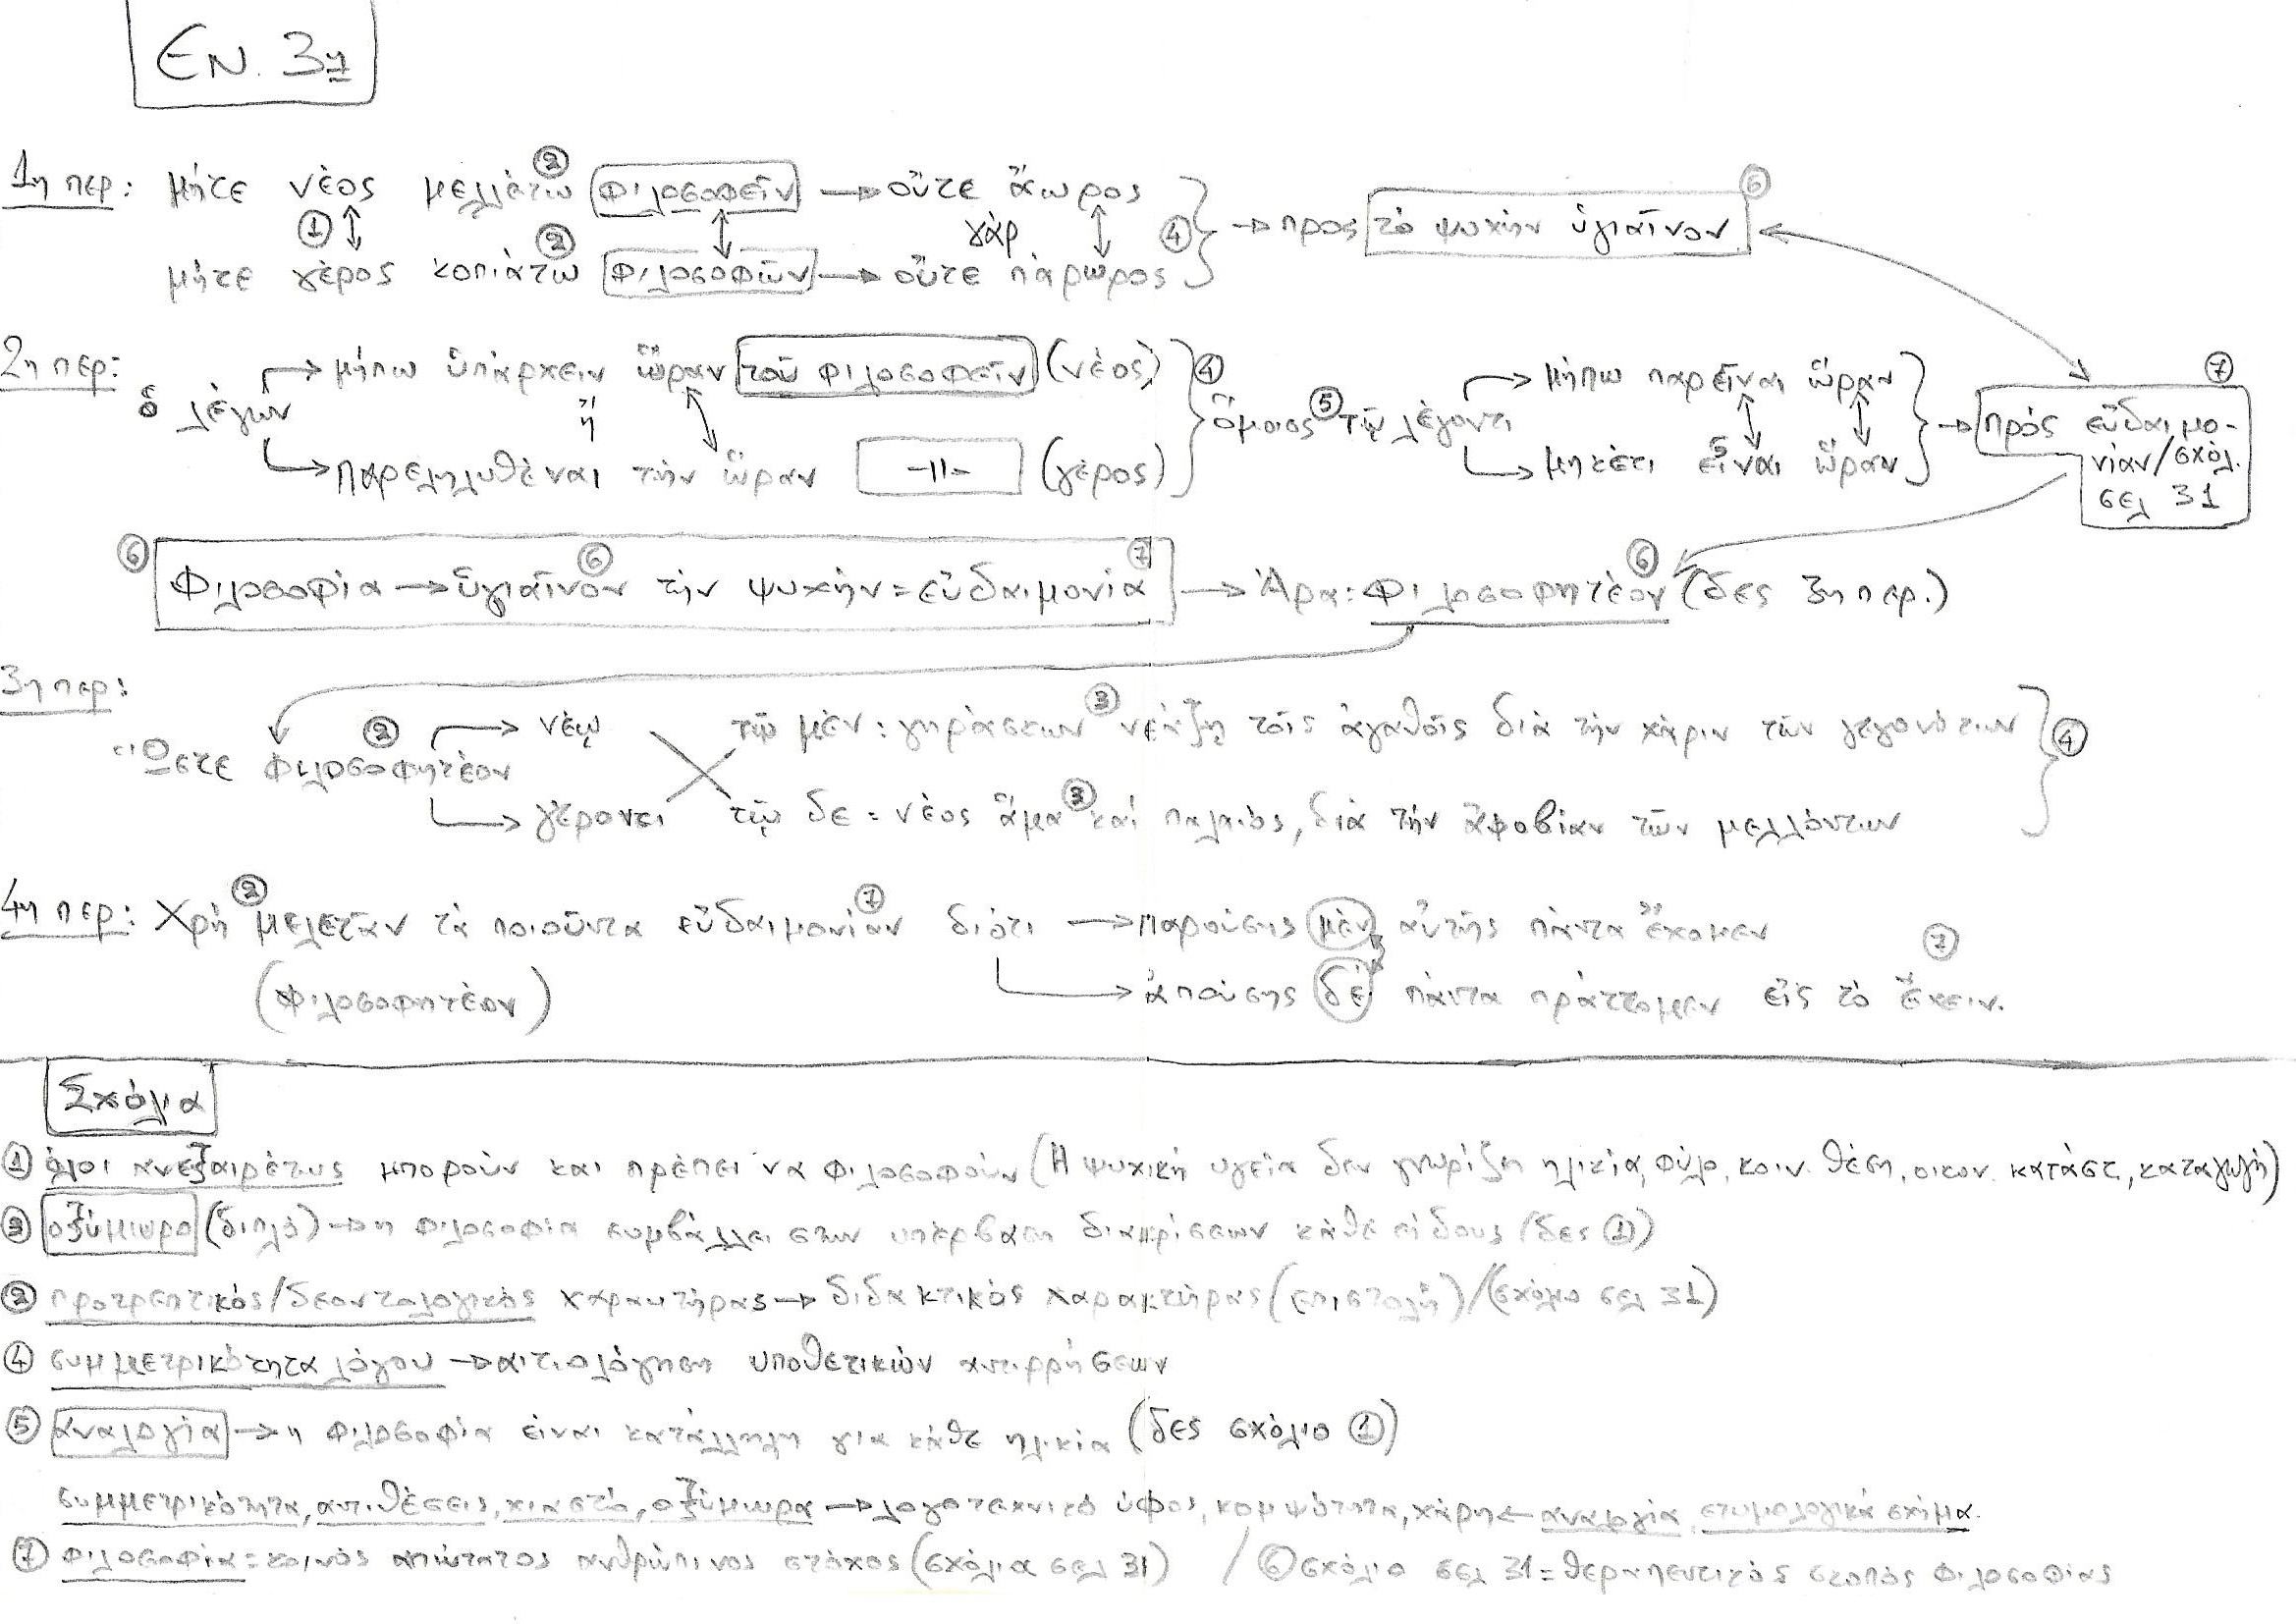 ΕΝ. 3η
1η περ: μήτε νέος μελλέτω ② φιλοσοφεῖν → οὔτε ἄωρος
① ② γάρ ④ → προς τὸ ψυχὴν ὑγιαῖνον ⑥
μήτε γέρος κοπιάτω φιλοσοφῶν → οὔτε πάρωρος
2η περ: ὁ λέγων → μήπω ὑπάρχειν ὥραν τοῦ φιλοσοφεῖν (νέος) ④
ἢ
→ παρεληλυθέναι τὴν ὥραν -||- (γέρος)
ὅμοιος ⑤ τῷ λέγοντι → μήπω παρεῖναι ὥραν
→ μηκέτι εἶναι ὥραν
→ πρὸς εὐδαιμο-
νίαν/σχόλ.
σελ 31 ⑦
⑥ Φιλοσοφία → ὑγιαῖνον ⑥ τὴν ψυχήν = εὐδαιμονία ⑦ → Άρα: Φιλοσοφητέον ⑥ (δες 3η περ.)
3η περ:
Ὥστε φιλοσοφητέον ② → νέῳ τῷ μὲν: γηράσκων ③ νεάζῃ τοῖς ἀγαθοῖς διὰ τὴν χάριν τῶν γεγονότων ④
→ γέροντι τῷ δε = νέος ἅμα ③ καὶ παλαιός, διὰ τὴν ἀφοβίαν τῶν μελλόντων
4η περ: Χρὴ ② μελετᾶν τὰ ποιοῦντα εὐδαιμονίαν ⑦ διότι → παρούσης μὲν αὐτῆς πάντα ἔχομεν
(φιλοσοφητέον) → ἀπούσης δὲ πάντα πράττομεν εἰς τὸ ἔχειν. ⑦
Σχόλια
① όλοι ανεξαιρέτως μπορούν και πρέπει να φιλοσοφούν (Η ψυχική υγεία δεν γνωρίζει ηλικία, φύλο, κοιν. θέση, οικον. κατάστ, καταγωγή)
③ οξύμωρο (διπλό) → η φιλοσοφία συμβάλλει στην υπέρβαση διακρίσεων κάθε είδους (δες ①)
② προτρεπτικός/δεοντολογικός χαρακτήρας → διδακτικός χαρακτήρας (επιστολή)/(σχόλιο σελ 31)
④ συμμετρικότητα λόγου → αιτιολόγηση υποθετικών αντιρρήσεων
⑤ αναλογία → η φιλοσοφία είναι κατάλληλη για κάθε ηλικία (δες σχόλιο ①)
συμμετρικότητα, αντιθέσεις, χιαστό, οξύμωρα → λογοτεχνικό ύφος, κομψότητα, χάρη ← αναλογία, ετυμολογικά σχήμα.
⑦ φιλοσοφία = κοινός απώτατος ανθρώπινος στόχος (σχόλια σελ 31) / ⑥ σχόλιο σελ 31 = θεραπευτικός σκοπός φιλοσοφίας